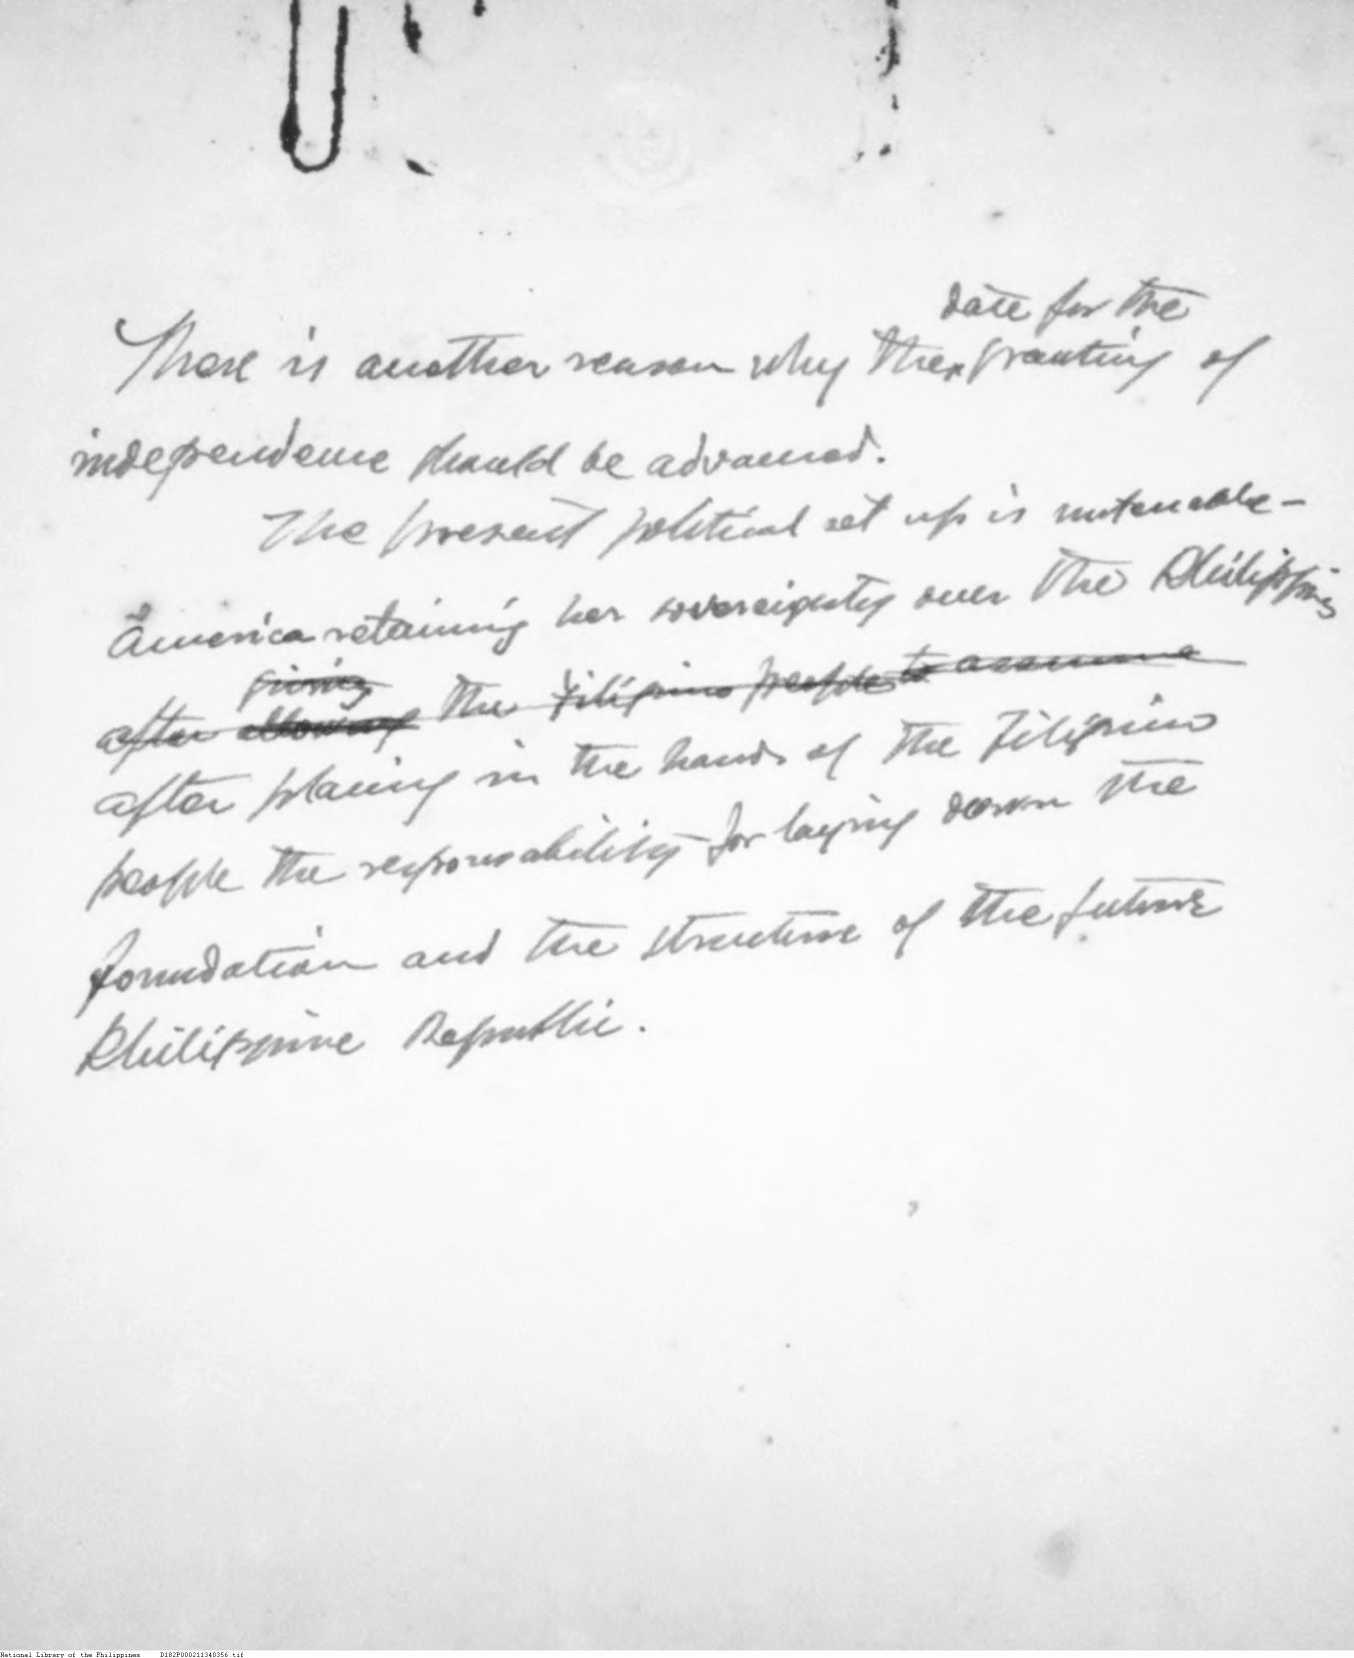 date for the
There is another reason why the granting of
independence should be advanced.
The present political set up is untenable –
America retaining her sovereignty over the Philippines
giving
after allowing the Filipino people to assume
after placing in the hands of the Filipino
people the responsability for laying down the
foundation and the structure of the future
Philippine Republic.
National Library of the Philippines D182P000211340356.tif